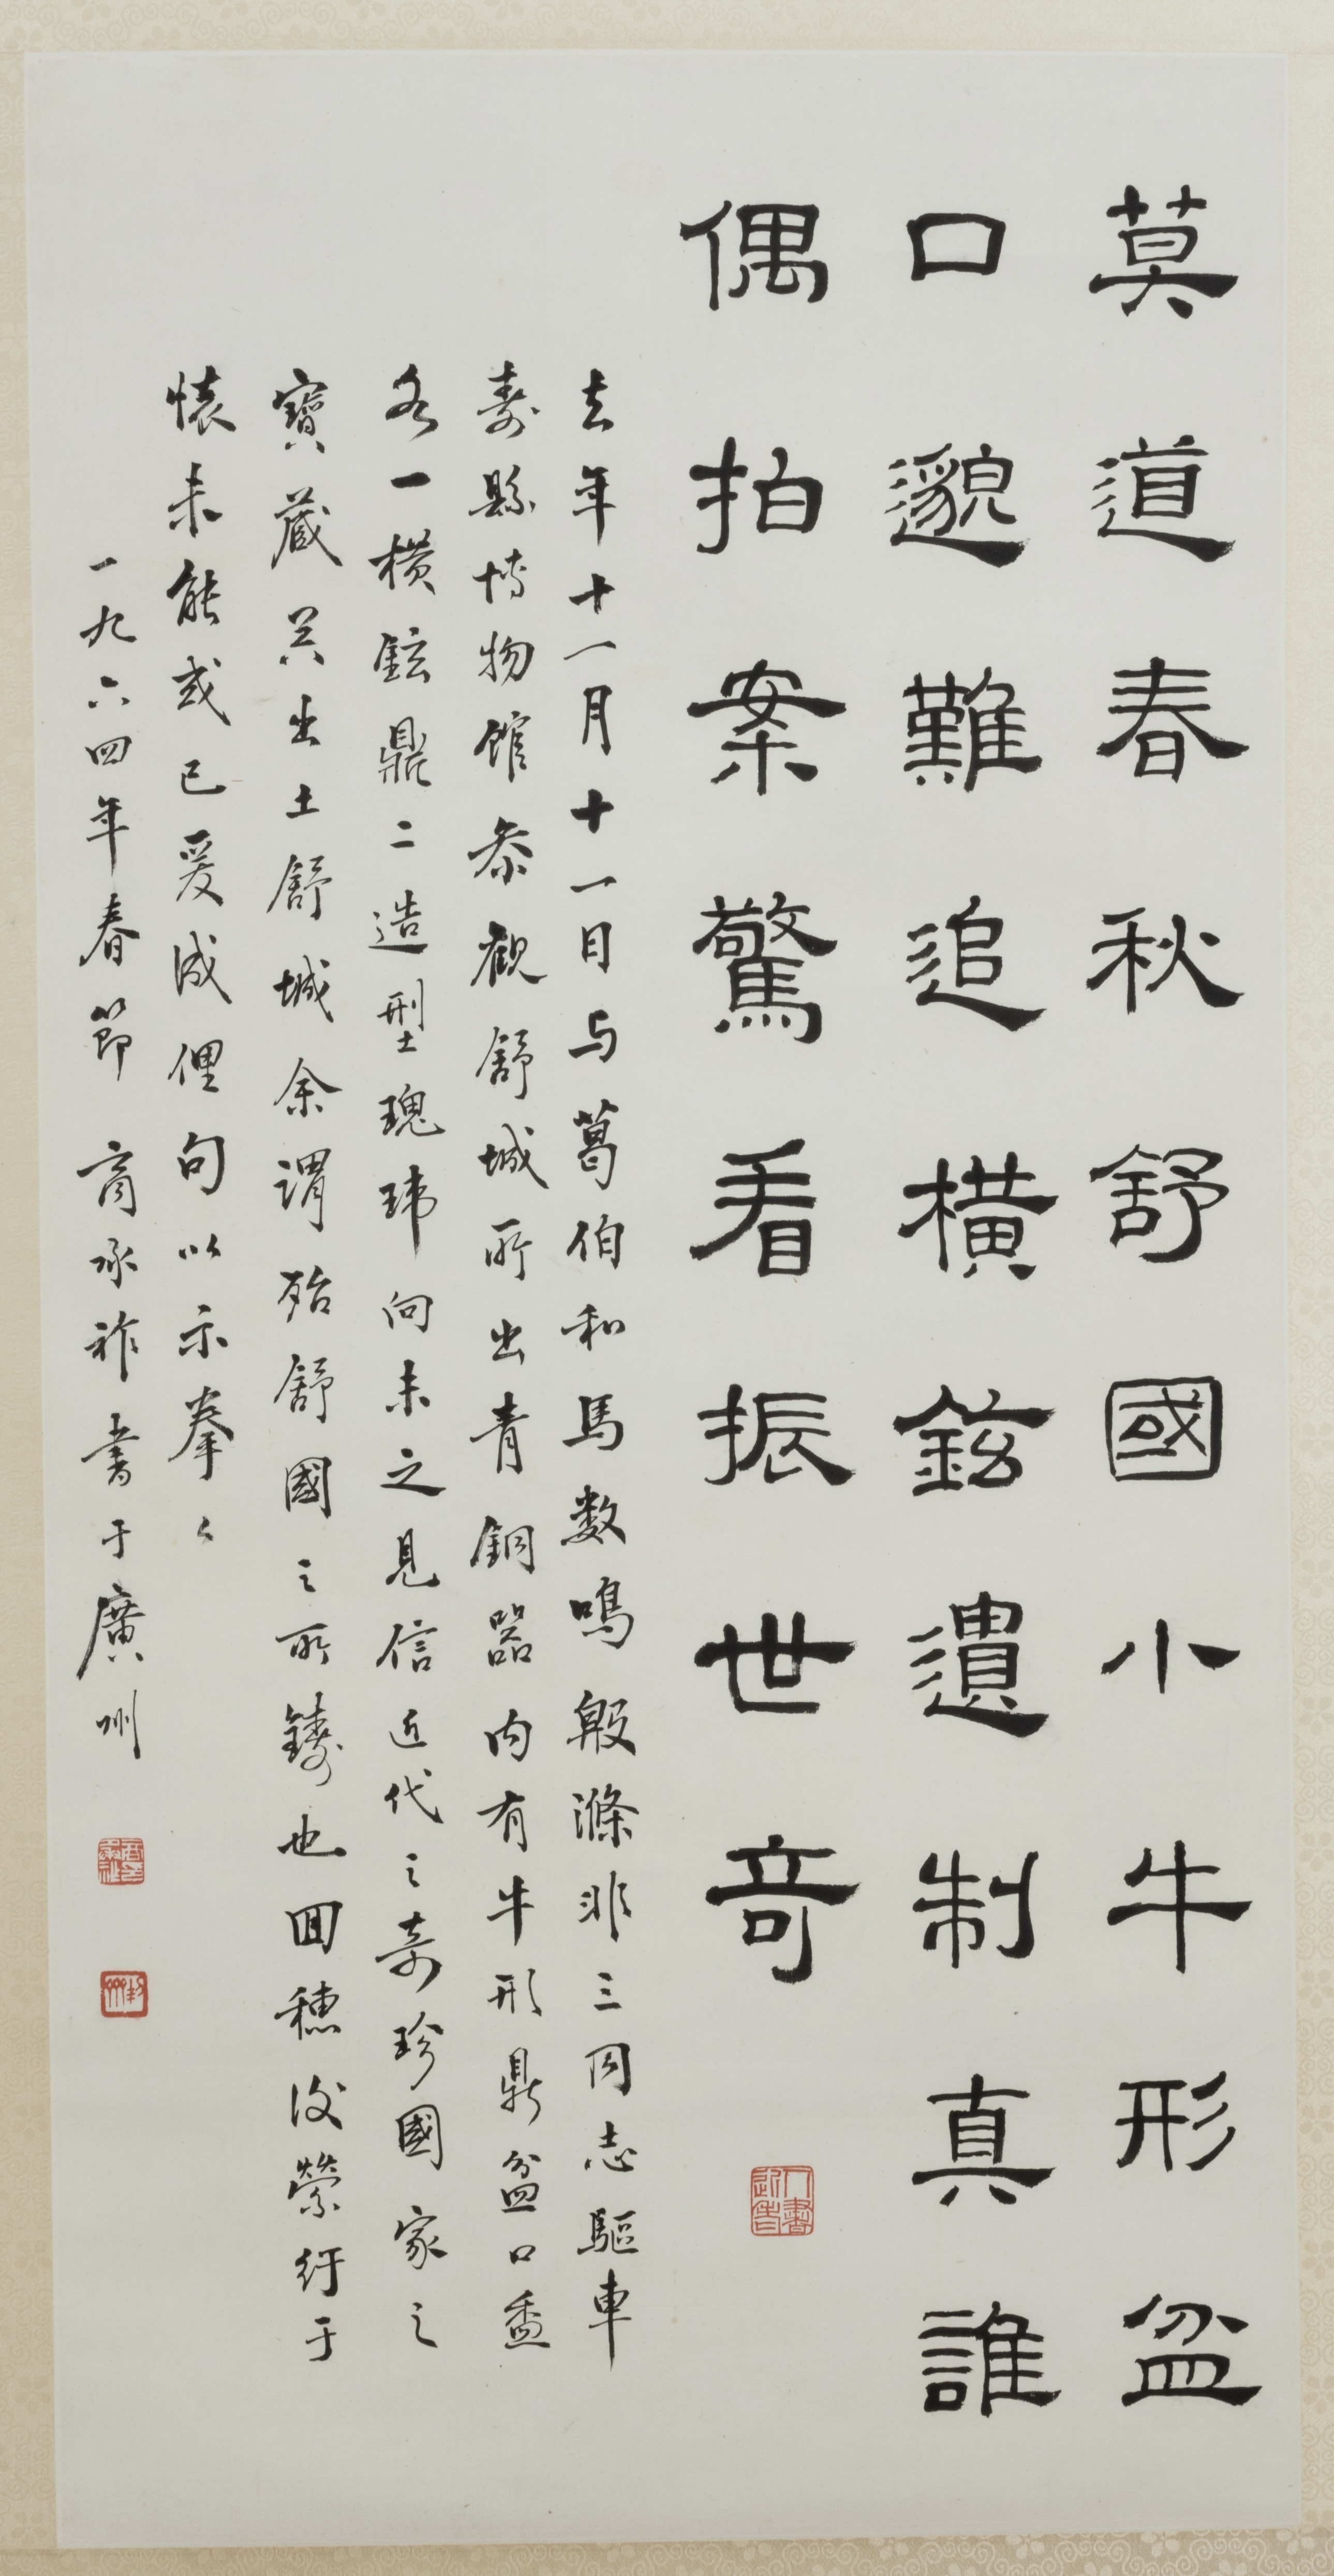 莫道春秋舒國小牛形盆
口邈難追橫鉉遺制真誰
偶拍案驚看振世奇
去年十一月十一日与葛伯和馬数鳴殷滌非三同志驅車
壽縣博物館参觀舒城所出青銅器内有牛形鼎盆口盉
各一橫鉉鼎二造型瑰瑋向未之見信近代之奇珍國家之
寶藏器出土舒城余謂殆舒國之所鑄也回穗後縈紆于
懐未能或已爰成俚句以示拳〻
一九六四年春節 商承祚書于廣州